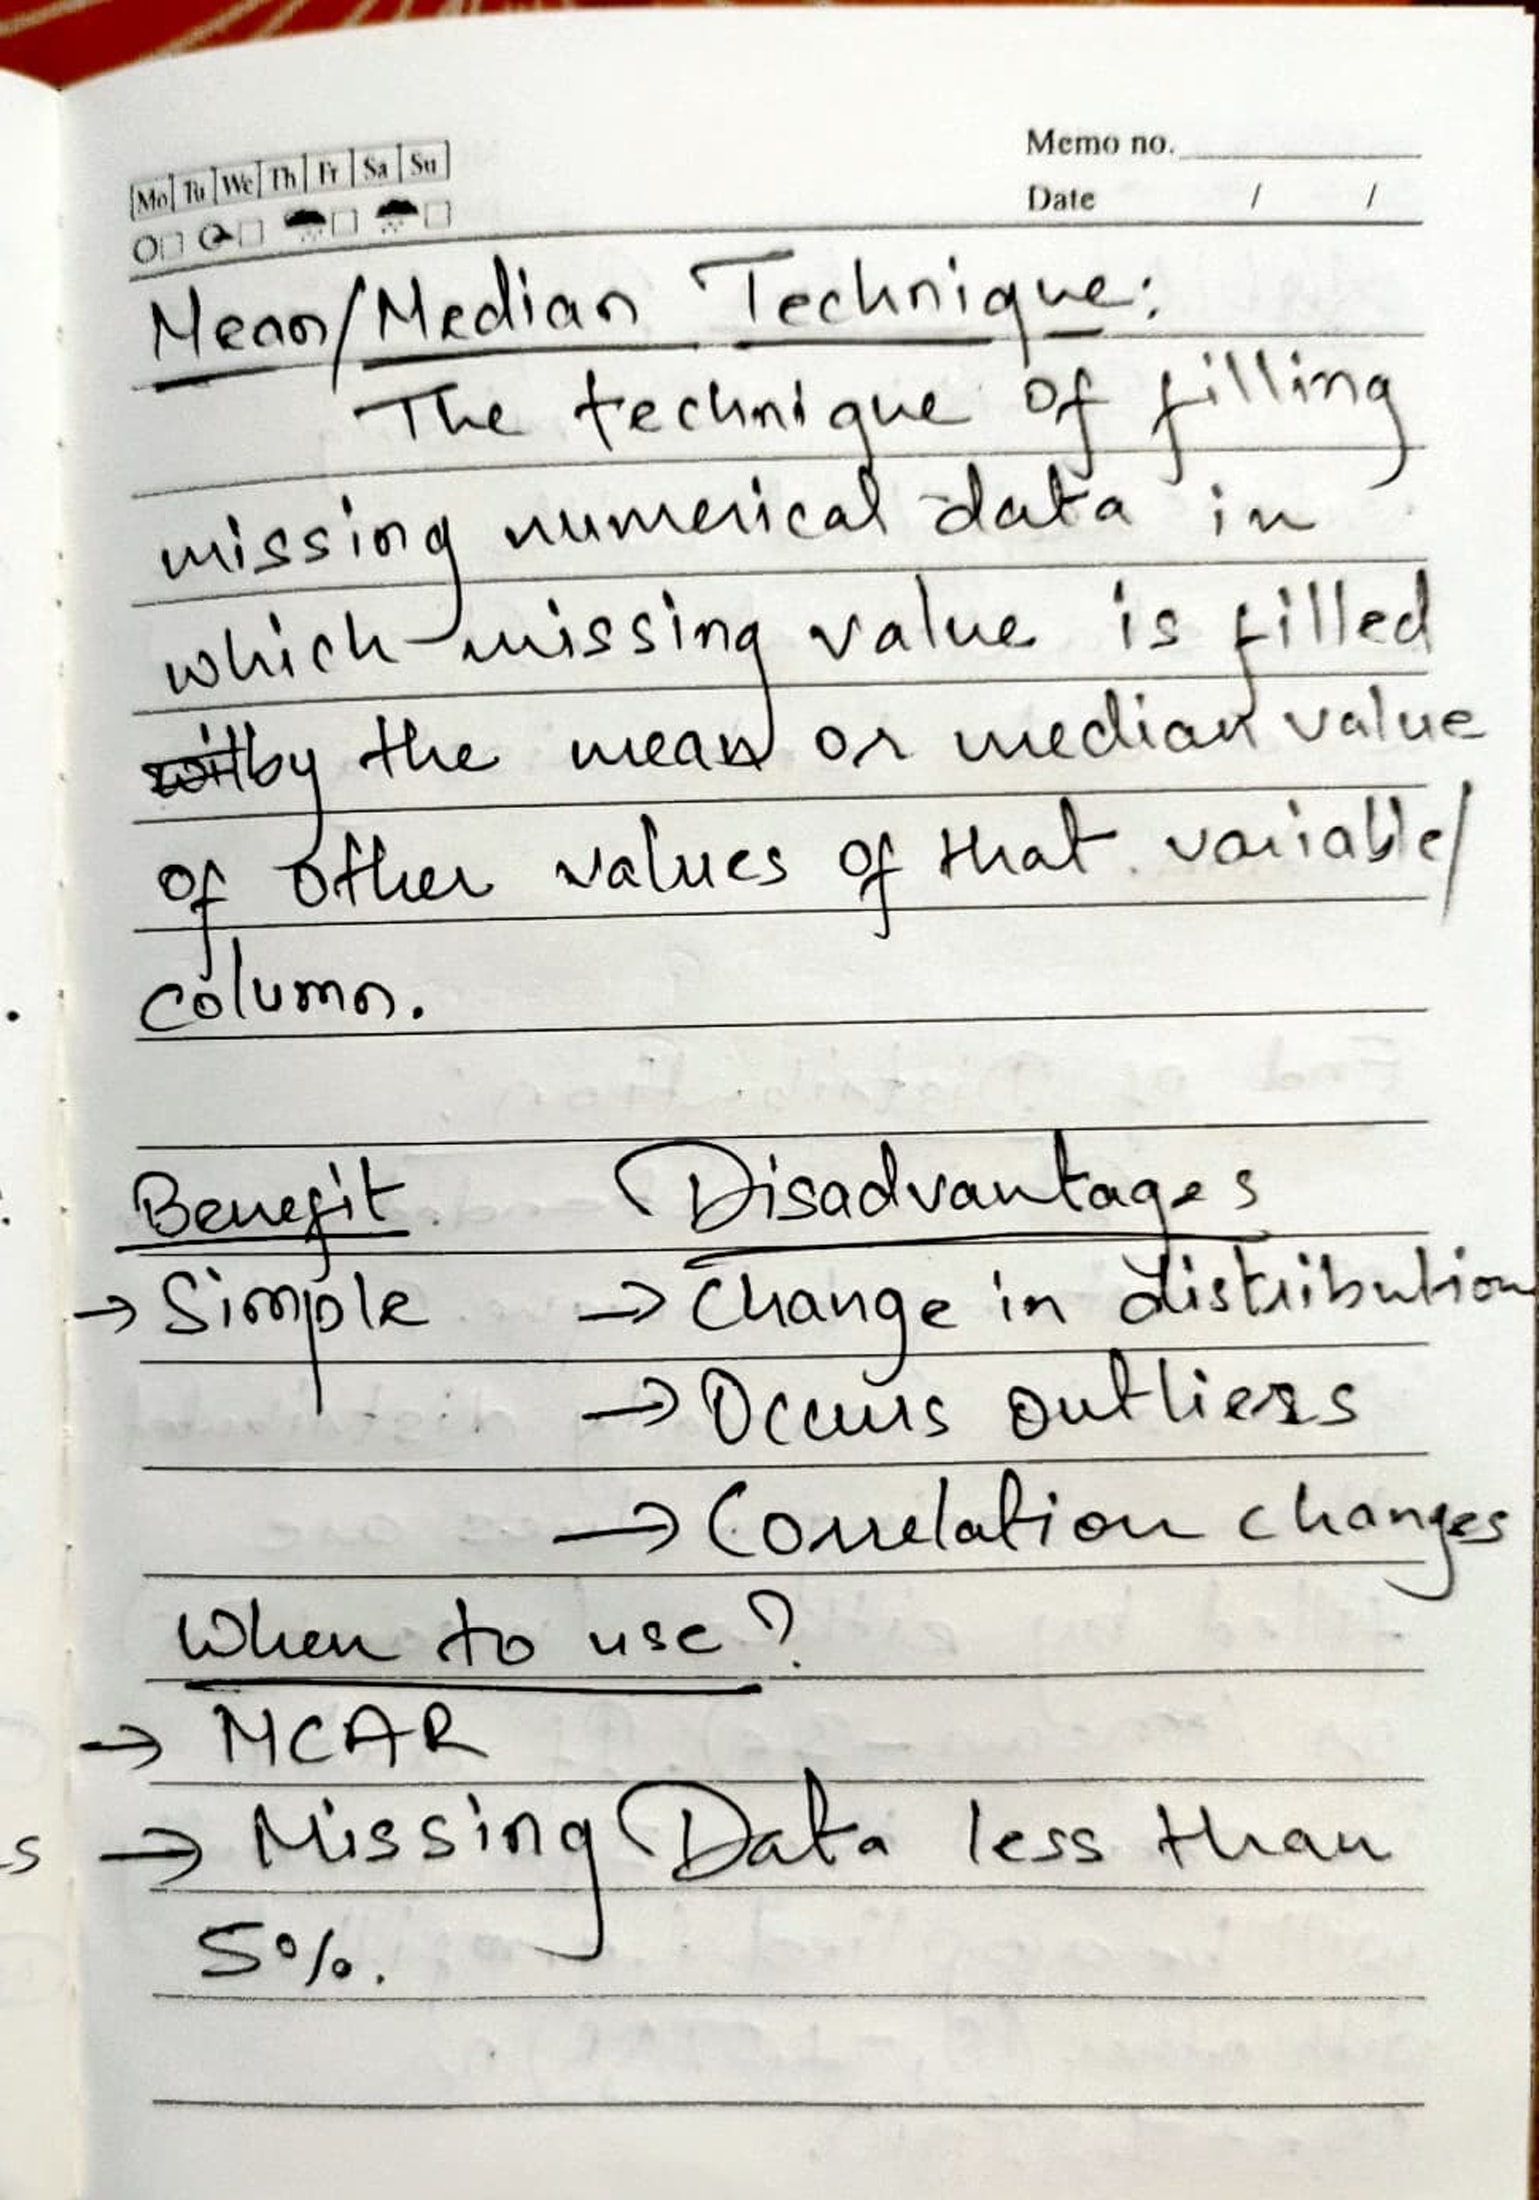 Mo Tu We Th Fr Sa Su
Memo no.
Date / /
Mean/Median Technique:
The technique of filling
missing numerical data in
which missing value is filled
by the mean or median value
of other values of that variable/
column.
Benefit Disadvantages
→ Simple → Change in distribution
→ Occurs outliers
→ Correlation changes
When to use?
→ MCAR
→ Missing Data less than
5%.